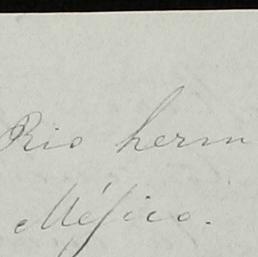 Rio herm
Méjico.